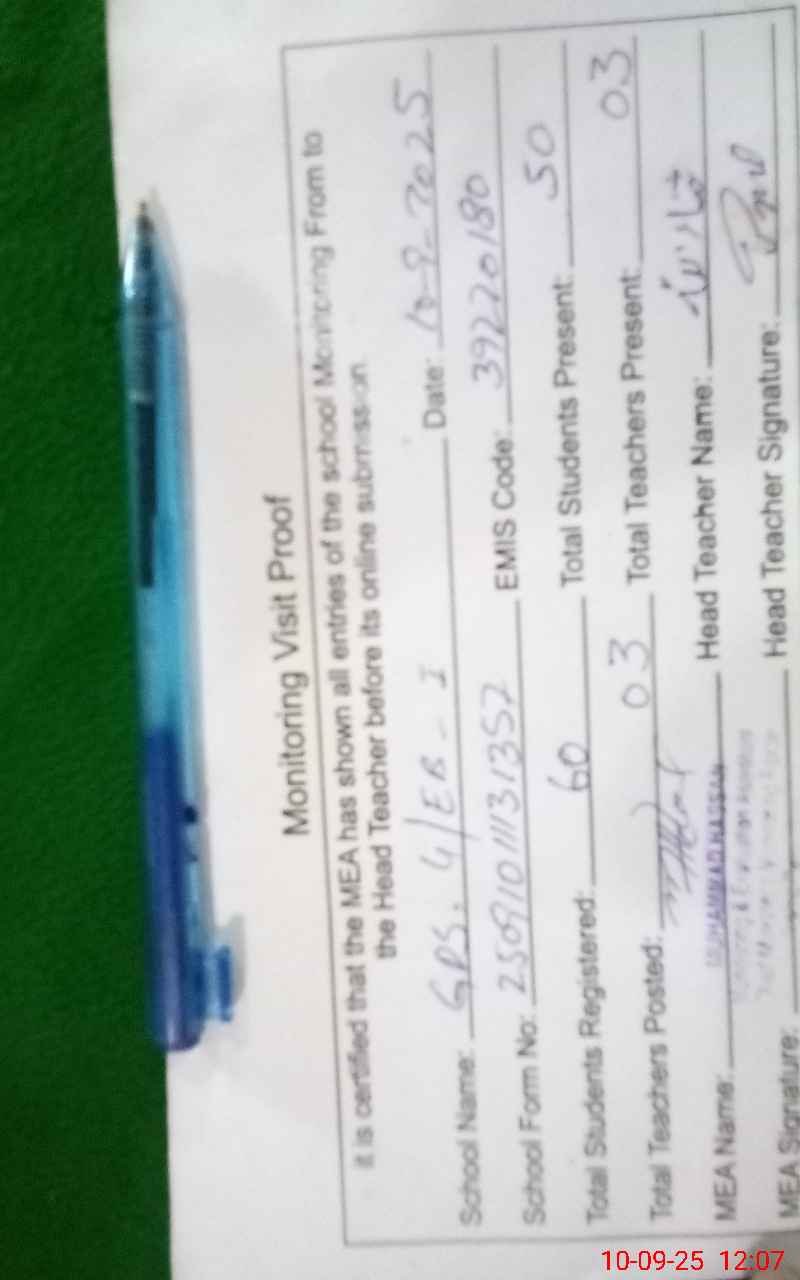 Monitoring Visit Proof
it is certified that the MEA has shown all entries of the school Monitoring From to
the Head Teacher before its online submission.
School Name: GPS. 4/EB - I Date: 10-9-2025
School Form No: 2509101113 1357 EMIS Code: 39220180
Total Students Registered: 60 Total Students Present: 50
Total Teachers Posted: 03 Total Teachers Present: 03
MEA Name: MUHAMMAD HASSAN Head Teacher Name:
MEA Signature: Head Teacher Signature:
10-09-25 12:07